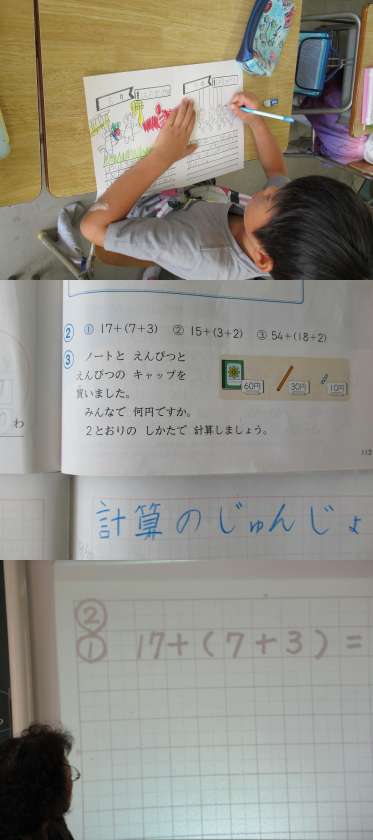 ② ① 17+(7+3) ② 15+(3+2) ③ 54+(18+2)
③ ノートと えんぴつと
えんぴつの キャップを
買いました。
みんなで 何円ですか。
2とおりの しかたで 計算しましょう。
60円 30円 10円
わ
113
計算のじゅんじょ
②
① 17+(7+3)=